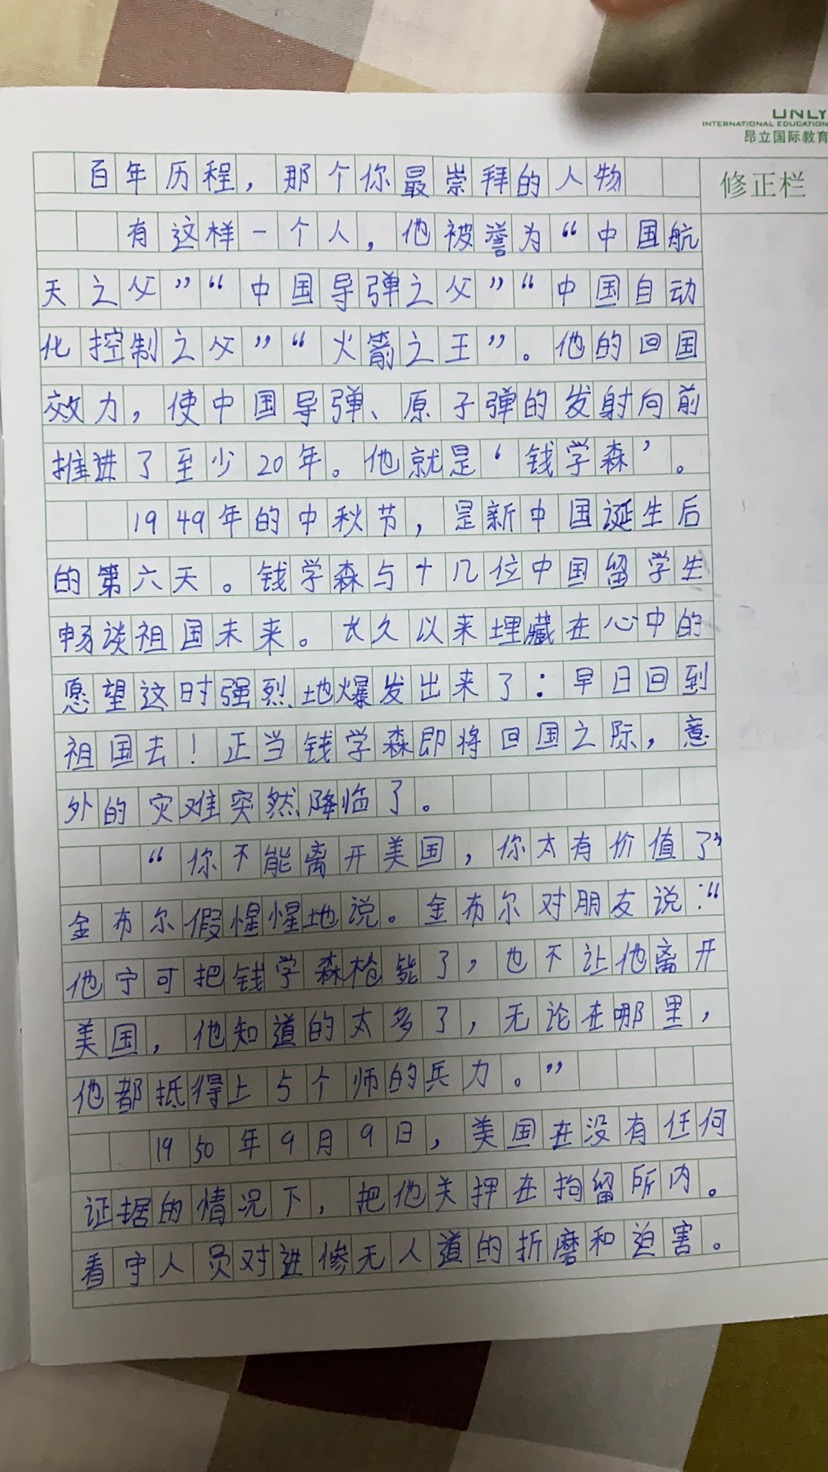 UNLY
INTERNATIONAL EDUCATION
昂立国际教育
修正栏
百年历程，那个你最崇拜的人物
有这样一个人，他被誉为“中国航
天之父”“中国导弹之父”“中国自动
化控制之父”“火箭之王”。他的回国
效力，使中国导弹、原子弹的发射向前
推进了至少20年。他就是‘钱学森’。
1949年的中秋节，是新中国诞生后
的第六天。钱学森与十几位中国留学生
畅谈祖国未来。长久以来埋藏在心中的
愿望这时强烈地爆发出来了：早日回到
祖国去！正当钱学森即将回国之际，意
外的灾难突然降临了。
“你不能离开美国，你太有价值了”
金布尔假惺惺地说。金布尔对朋友说：“
他宁可把钱学森枪毙了，也不让他离开
美国，他知道的太多了，无论在哪里，
他都抵得上5个师的兵力。”
1950年9月9日，美国在没有任何
证据的情况下，把他关押在拘留所内。
看守人员对进惨无人道的折磨和迫害。